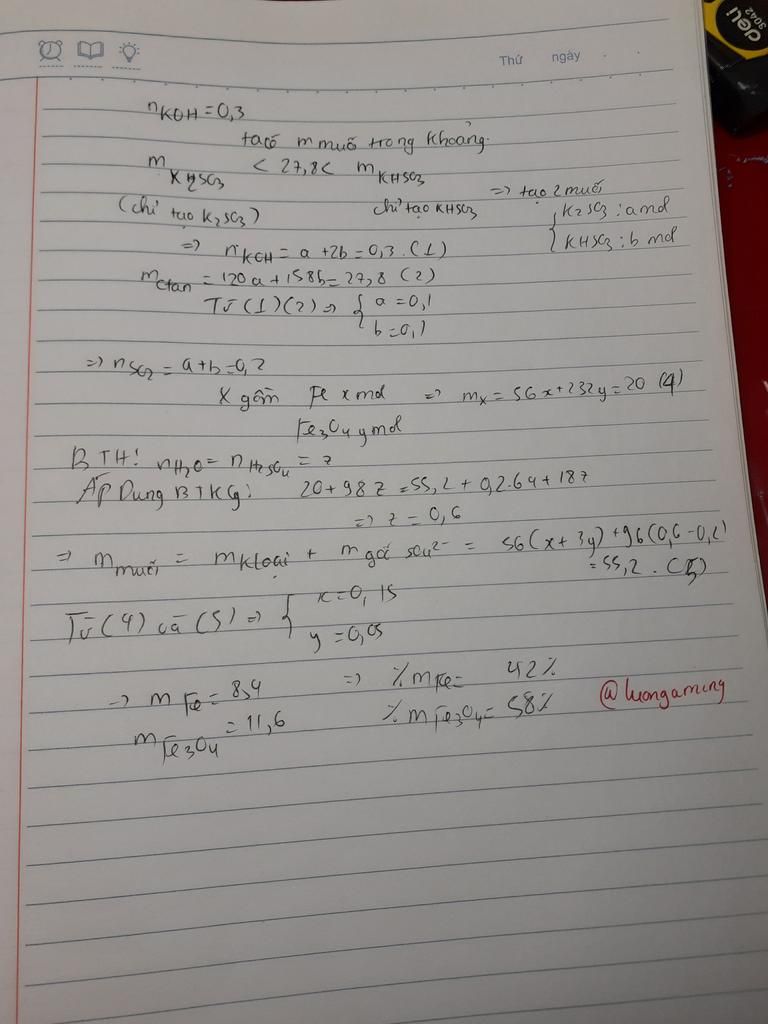 Thứ ngày
deli
3042
nKOH = 0,3
ta có m muối trong khoảng.
mK2SO3 < 27,8 < mKHSO3
(chỉ tạo K2SO3) chỉ tạo KHSO3 => tạo 2 muối
{ K2SO3 : a mol
KHSO3 : b mol
=> nKOH = a + 2b = 0,3. (1)
mctan = 120a + 158b = 27,8 (2)
Từ (1)(2) => { a = 0,1
b = 0,1
=> nSO2 = a + b = 0,2
X gồm Fe x mol => mX = 56x + 232y = 20 (4)
Fe3O4 y mol
BTH: nH2O = nH2SO4 = z
Áp Dụng BTKG: 20 + 98z = 55,2 + 0,2.64 + 18z
=> z = 0,6
=> m muối = m kloại + m gốc SO4²⁻ = 56(x + 3y) + 96(0,6 - 0,2)
= 55,2. (5)
Từ (4) và (5) => { x = 0,15
y = 0,05
=> mFe = 8,4 => %mFe = 42%
mFe3O4 = 11,6 %mFe3O4 = 58%
@luongaming